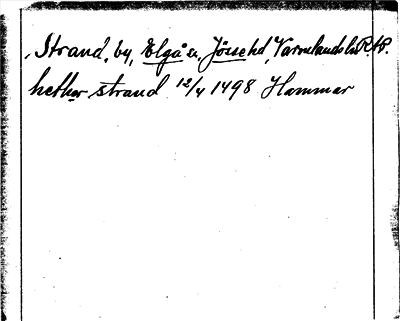 Strand, by, Elgå sn, Jösse hd, Varmlands l. R.A.P.
hethor strand 12/4 1498 Hammar